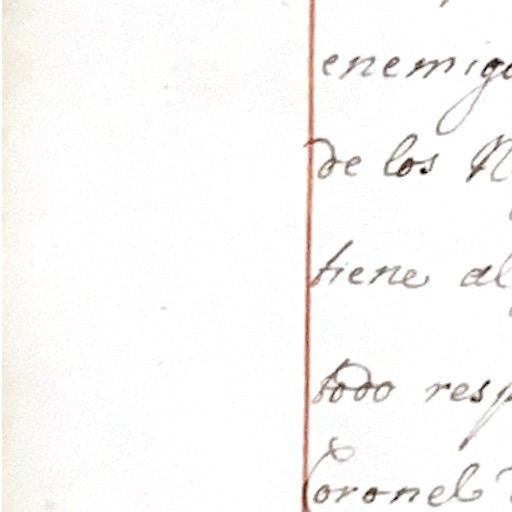 enemigo
de los
tiene al
todo resp
Coronel